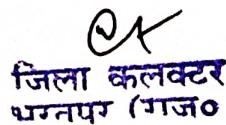 जिला कलक्टर
भरतपुर (राज०